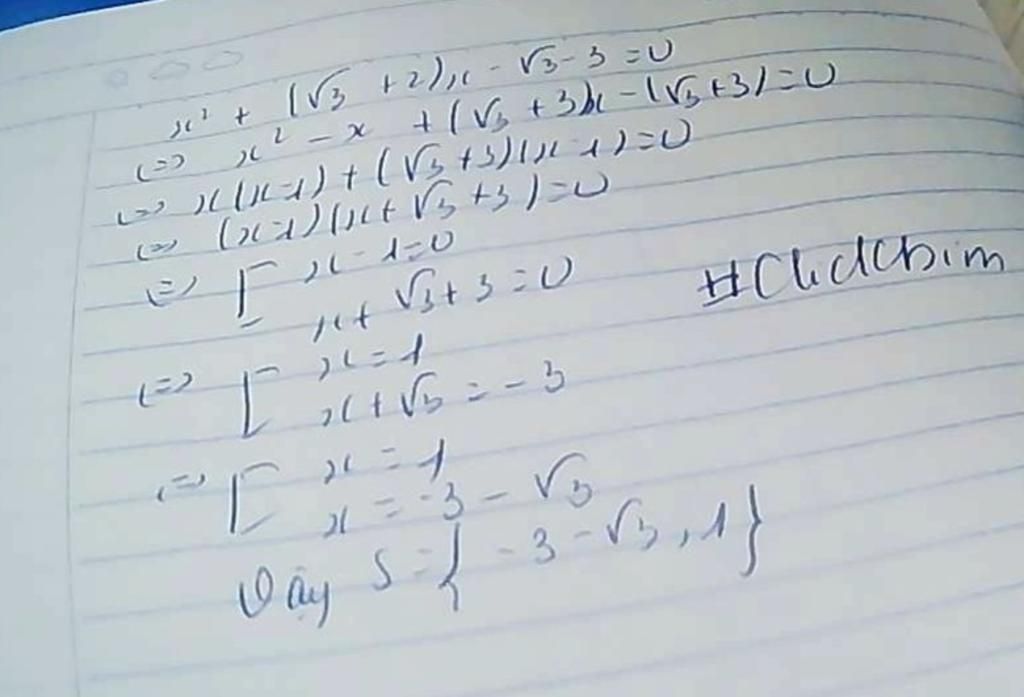 x² + (√3 + 2)x - √3 - 3 = 0
(=) x² - x + (√3 + 3)x - (√3 + 3) = 0
(=) x(x-1) + (√3 + 3)(x-1) = 0
(=) (x-1)(x + √3 + 3) = 0
(=) [ x - 1 = 0
x + √3 + 3 = 0
(=) [ x = 1
x + √3 = -3
(=) [ x = 1
x = -3 - √3
Vậy S = { -3 - √3, 1 }